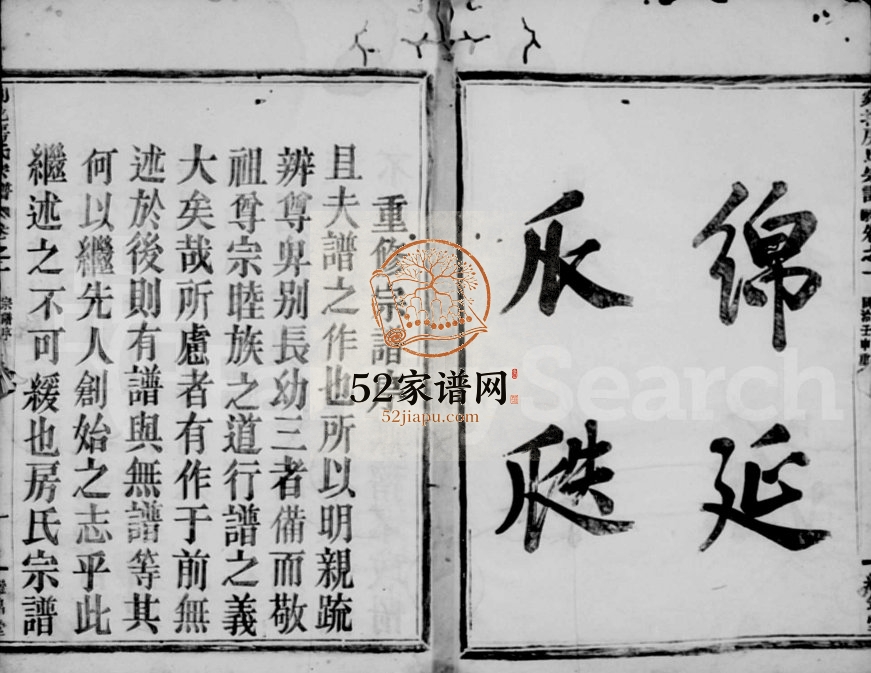 綿延
瓜瓞
重修宗譜序
且夫譜之作也所以明親疏
辨尊卑别長幼三者備而敬
祖尊宗睦族之道行譜之義
大矣哉所慮者有作于前無
述於後則有譜與無譜等其
何以繼先人創始之志乎此
繼述之不可緩也房氏宗譜
宗譜序
52家谱网
52jiapu.com